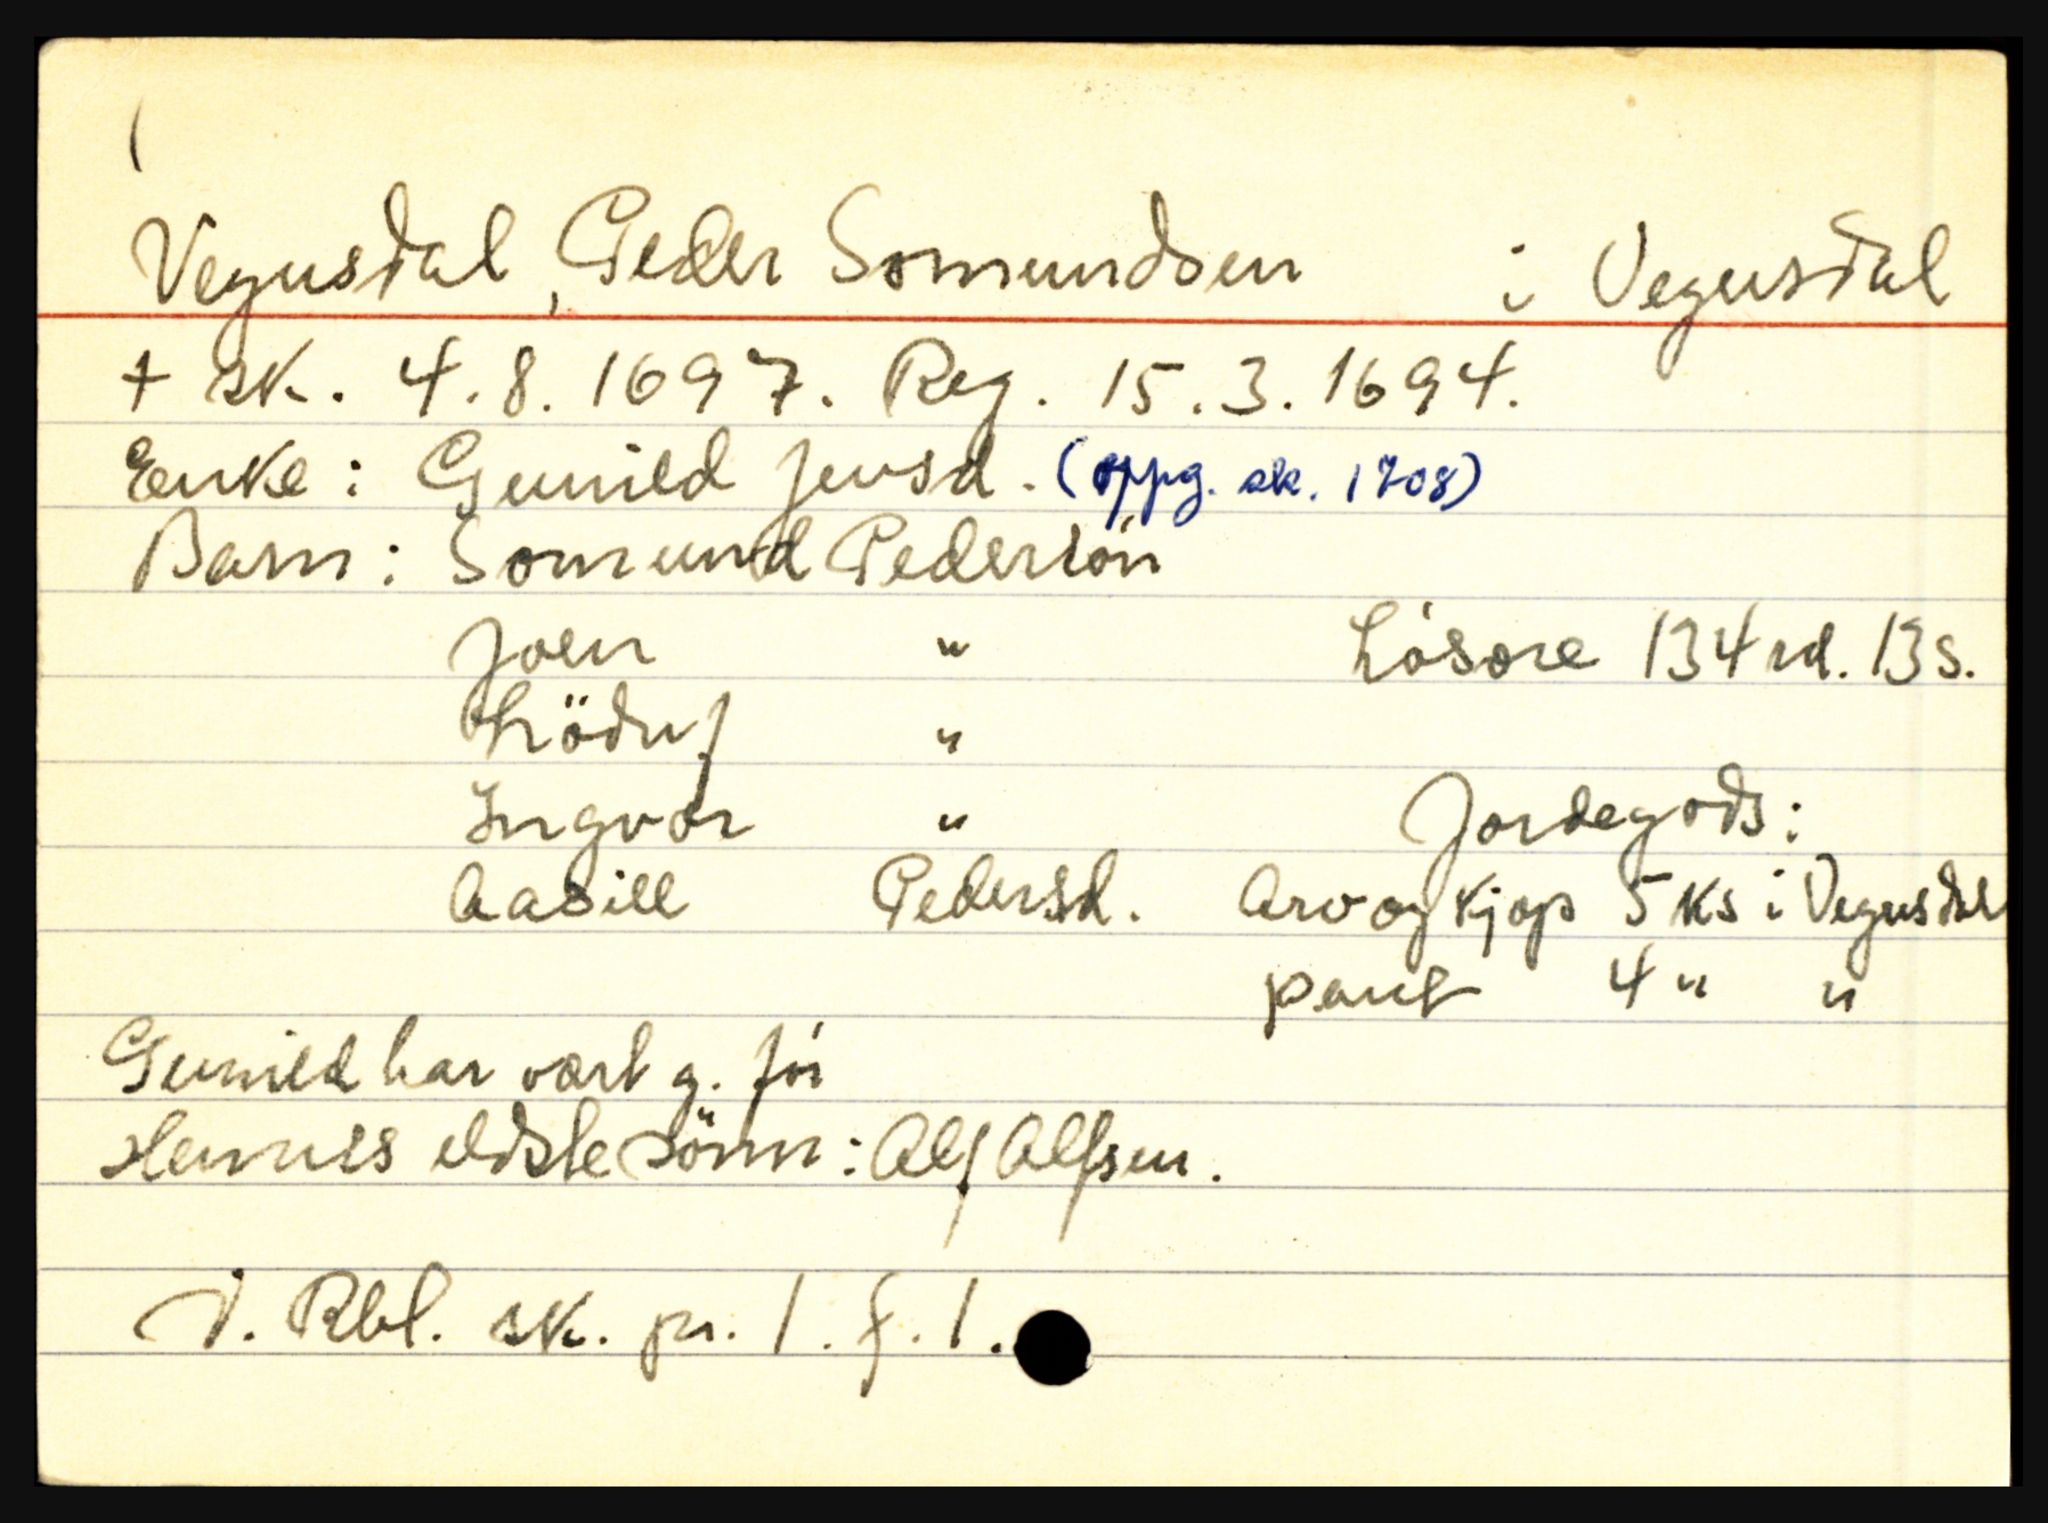 Vegusdal, Peder Somundsen i Vegusdal
+ sk. 4.8.1697. Reg. 15.3.1694.
Enke: Gunild Jensd. (oppg. sk. 1708)
Barn: Somund Pedersön
Joen " Lösöre 134 rd. 13 s.
"
Ingvor " Jordegods:
Aasill Pedersd. Arv og kjöp 5 ks i Vegusdal
pant 4 " "
Gunild har vært g. för
Hennes eldste sönn: Alf Alfsen.
N. Rbl. sk. pr. 1. f. 1.